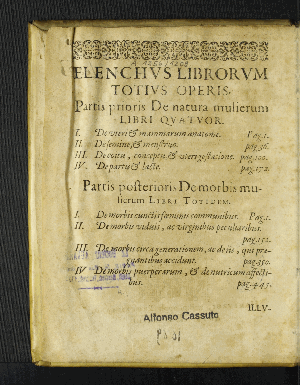 ELENCHVS LIBRORVM
TOTIVS OPERIS.
Partis prioris De natura mulierum
LIBRI QVATVOR.
I. De uteri & mammarum anatome. Pag.1.
II. De semine, & menstruo. pag.56.
III. De coitu, conceptu & uterogestatione. pag.100.
IV. De partu & lacte. pag.172.
Partis posterioris De morbis mu-
lierum LIBRI TOTIDEM.
I. De morbis cunctis fœminis communibus. Pag.1.
II. De morbis viduis, ac virginibus peculiaribus.
pag.152.
III. De morbis circa generationem, ac de iis, qui præ-
gnantibus accidunt. pag.350.
IV De morbis puerperarum, & de nutricum affecti-
bus. pag.445.
ILLV-
Alfonso Cassuto